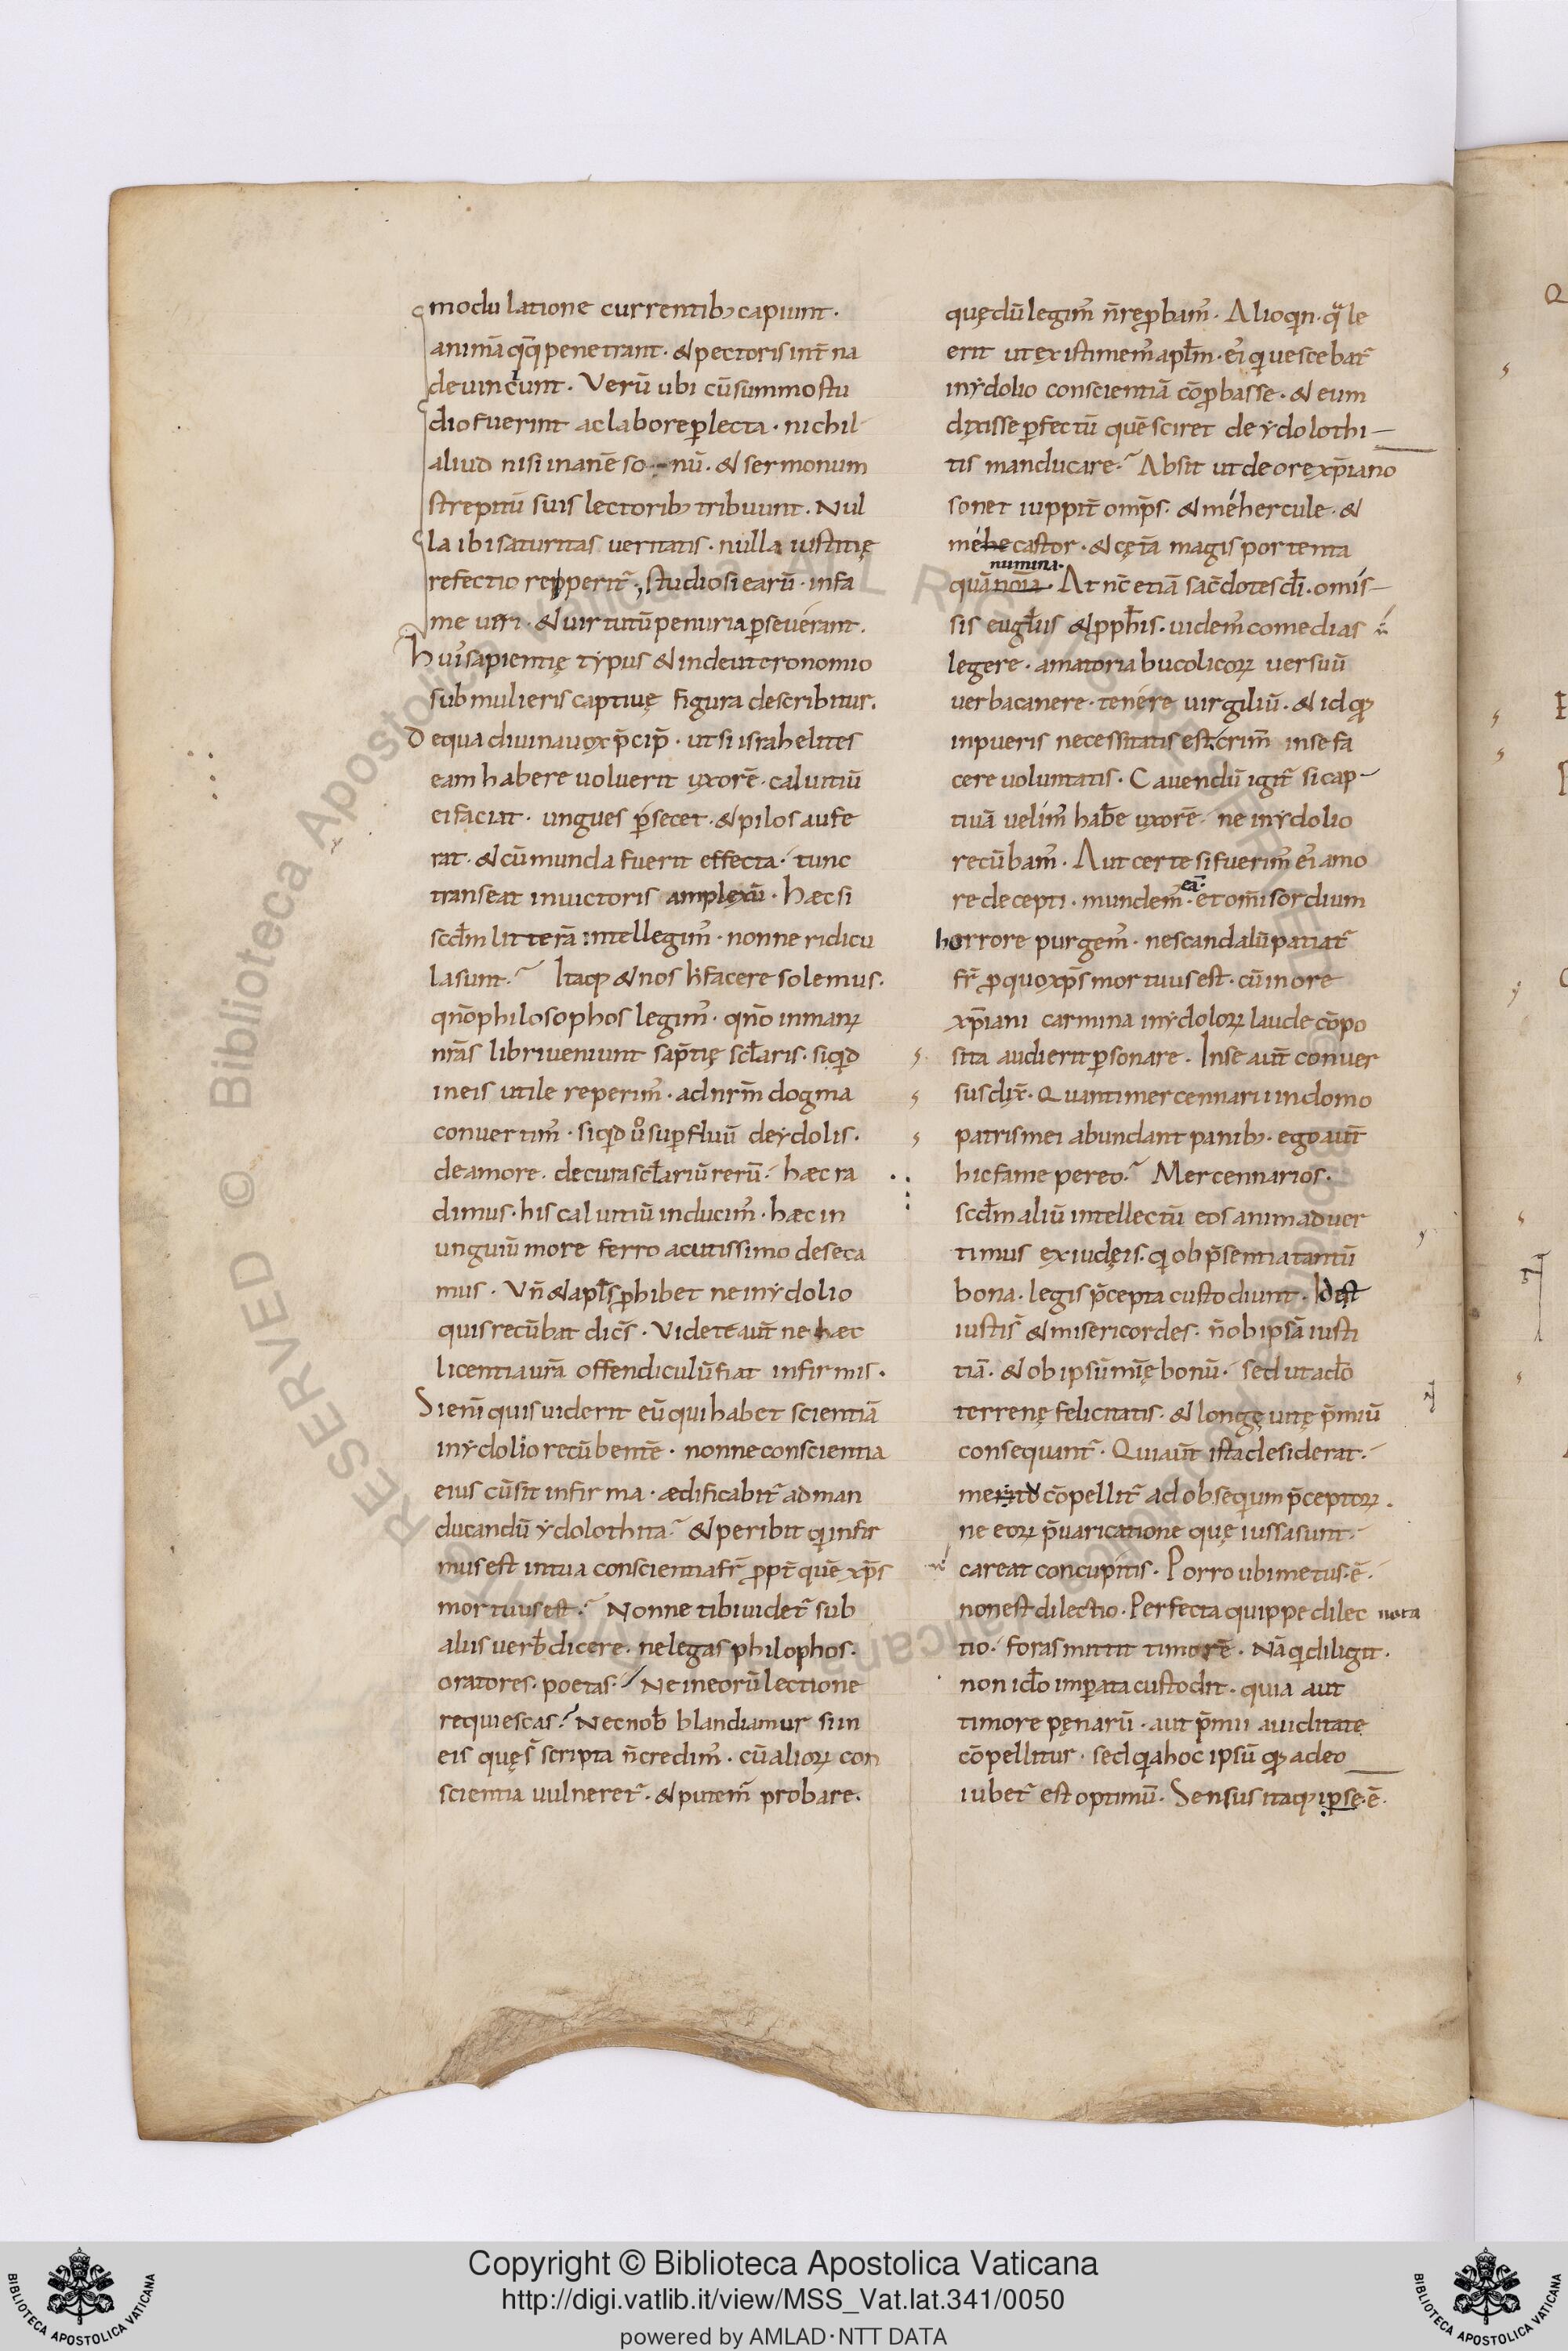 modulatione currentib; capiunt.
animā q̄q; penetrant. & pectoris int̄na
deuinciunt. Verū ubi cū summo stu
dio fuerint ac labore p̱lecta. nichil
aliud nisi inanē so--nū. & sermonum
strepitū suis lectorib; tribuunt. Nul
la ibi saturitas ueritatis. nulla iustitię
refectio repperit᷑. studiosi earū. in fa
me uiri. & uirtutū penuria p̱seuerant.
Hui᷒ sapientię typus & in deuteronomio
sub mulieris captiuę figura describitur.
De qua diuina uox p̄cip̄. ut si israhelites
eam habere uoluerit uxorē. caluitiū
ei faciat. ungues p̄secet. & pilos aufe
rat. & cū munda fuerit effecta. tunc
transeat in uictoris amplexū. Haec si
scd̄m litterā intellegim᷒. nonne ridicu
la sunt? Itaq; & nos h̄ facere solemus.
qn̄o philosophos legim᷒. qn̄o in man᷒
nr̄as libri ueniunt sap̄tię scl̄aris. siq̇d
in eis utile reperim᷒. ad nr̄m dogma
conuertim᷒. siq̇d ů sup̱fluū de ydolis.
de amore. de cura scl̄ariū rerū. haec ra
dimus. his caluitiū inducim᷒. haec in
unguiū more ferro acutissimo deseca
mus. Vn̄ & apl̄s p̱hibet ne in ydolio
quis recūbat dic̄s. Videte aūt ne haec
licentia ur̄a offendiculū fiat infirmis.
Si eni᷒ quis uiderit eū qui habet scientiā
in ydolio recūbentē. nonne conscientia
eius cū sit infirma. aedificabit᷑ ad man
ducandū ydolothita? & peribit qi infir
mus est in tua conscientia fr̄ p̱pt̄ quē xp̄s
mortuus est? Nonne tibi uidet᷑ sub
aliis uerb̄ dicere. ne legas philophos.
oratores. poetas. Ne in eorū lectione
requiescas? Nec nob̄ blandiamur si in
eis quę s᷑ scripta n̄ credim᷒. cū alior; con
scientia uulneret᷑. & putem᷑ probare.
quę dū legim᷒ n̄ rep̱bam᷒. Alioqin. qͣle
erit ut existimem᷒ apl̄m. ei᷒ qi uescebat᷑
in ydolio conscientiā cōp̱basse. & eum
dixisse p̱fectū quē sciret de ydolothi-
tis manducare? Absit ut de ore xp̄iano
sonet iuppit̄ omp̄s. & méhercule. &
méhecastor. & cęt̄a magis portenta
numina.
quā noīa. At nc̄ etiā sac̄dotes dī. omis-
sis eugl̄iis & p̱ph̄is. uidem᷒ comedias
legere. amatoria bucolicor; uersuū
uerba canere. tenere uirgiliū. & id q;
in pueris necessitatis est. crim̄ in se fa
cere uoluntatis. Cauendū igit᷑ si cap-
tiuā uelim᷒ hab̄e uxorē. ne in ydolio
recūbam᷒. Aut certe si fuerim᷒ ei᷒ amo
eā.
re decepti. mundem᷒. et om̄i sordium
horrore purgem᷒. ne scandalū patiat᷑
fr̄ p̱ quo xp̄s mortuus est. cū in ore
xp̄iani carmina in ydolor; laude cōpo
sita audierit p̱sonare. In se aūt conuer
sus dix̄. Quanti mercennarii in domo
patris mei abundant panib;. ego aūt
hic fame pereo? Mercennarios.
scd̄m aliū intellectū eos animaduer
timus ex iudęis. qi ob p̄sentia tantū
bona. legis p̄cepta custodiunt. Id est
iusti s᷑ & misericordes. n̄ ob ipsā iusti
tiā. & ob ipsū mīę bonū. sed ut a dō
terrenę felicitatis. & longę uitę p̄miū
consequant᷑. Qui aūt ista desiderat.
metu cōpellit᷑ ad obsequium p̄ceptor;.
ne eor; p̄uaricatione quę iussa sunt.
careat concupitis. Porro ubi metus .ē.
non est dilectio. Perfecta quippe dilec nota
tio. foras mittit timorē. Nā qi diligit.
non id̄o imp̱ata custodit. quia aut
timore pęnarū. aut p̄mii auiditate
cōpellitur. sed qia hoc ipsū q; a deo
iubet᷑ est optimū. Sensus itaq; ipse .ē.
Copyright © Biblioteca Apostolica Vaticana
http://digi.vatlib.it/view/MSS_Vat.lat.341/0050
powered by AMLAD·NTT DATA
BIBLIOTECA APOSTOLICA VATICANA
BIBLIOTECA APOSTOLICA VATICANA